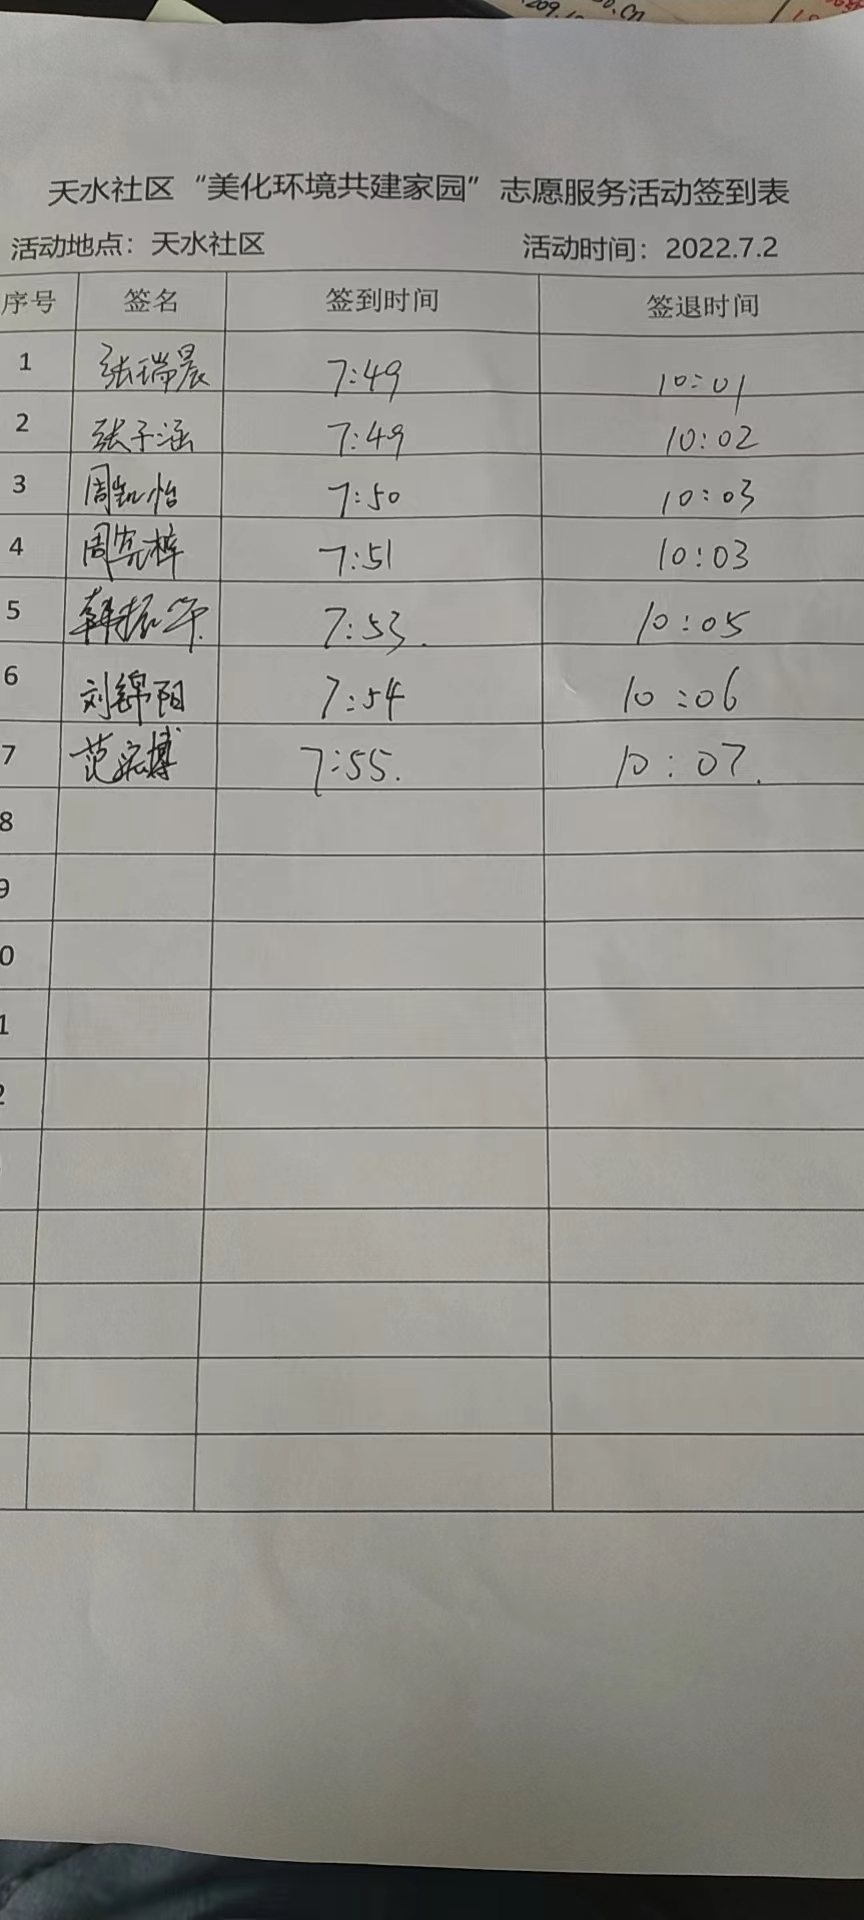 天水社区“美化环境共建家园”志愿服务活动签到表
活动地点：天水社区 活动时间：2022.7.2
序号 签名 签到时间 签退时间
1 张瑞晨 7:49 10:01
2 张子涵 7:49 10:02
3 周凯怡 7:50 10:03
4 周宪梓 7:51 10:03
5 韩振华 7:53. 10:05
6 刘锦阳 7:54 10:06
7 范宏博 7:55. 10:07.
8
9
0
1
2